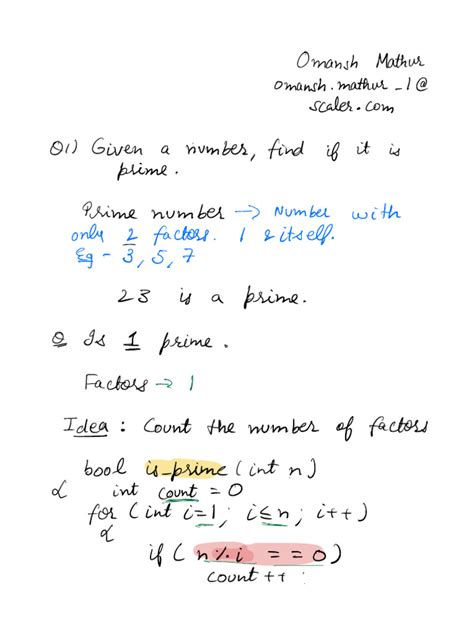 Omansh Mathur
omansh.mathur_1@
scaler.com
Q1) Given a number, find if it is
prime.
Prime number → Number with
only 2 factors. 1 & itself.
Eg - 3, 5, 7
23 is a prime.
Q Is 1 prime.
Factors → 1
Idea : Count the number of factors
bool is_prime (int n)
{ int count = 0
for (int i=1; i≤n; i++)
{
if ( n % i == 0)
count ++